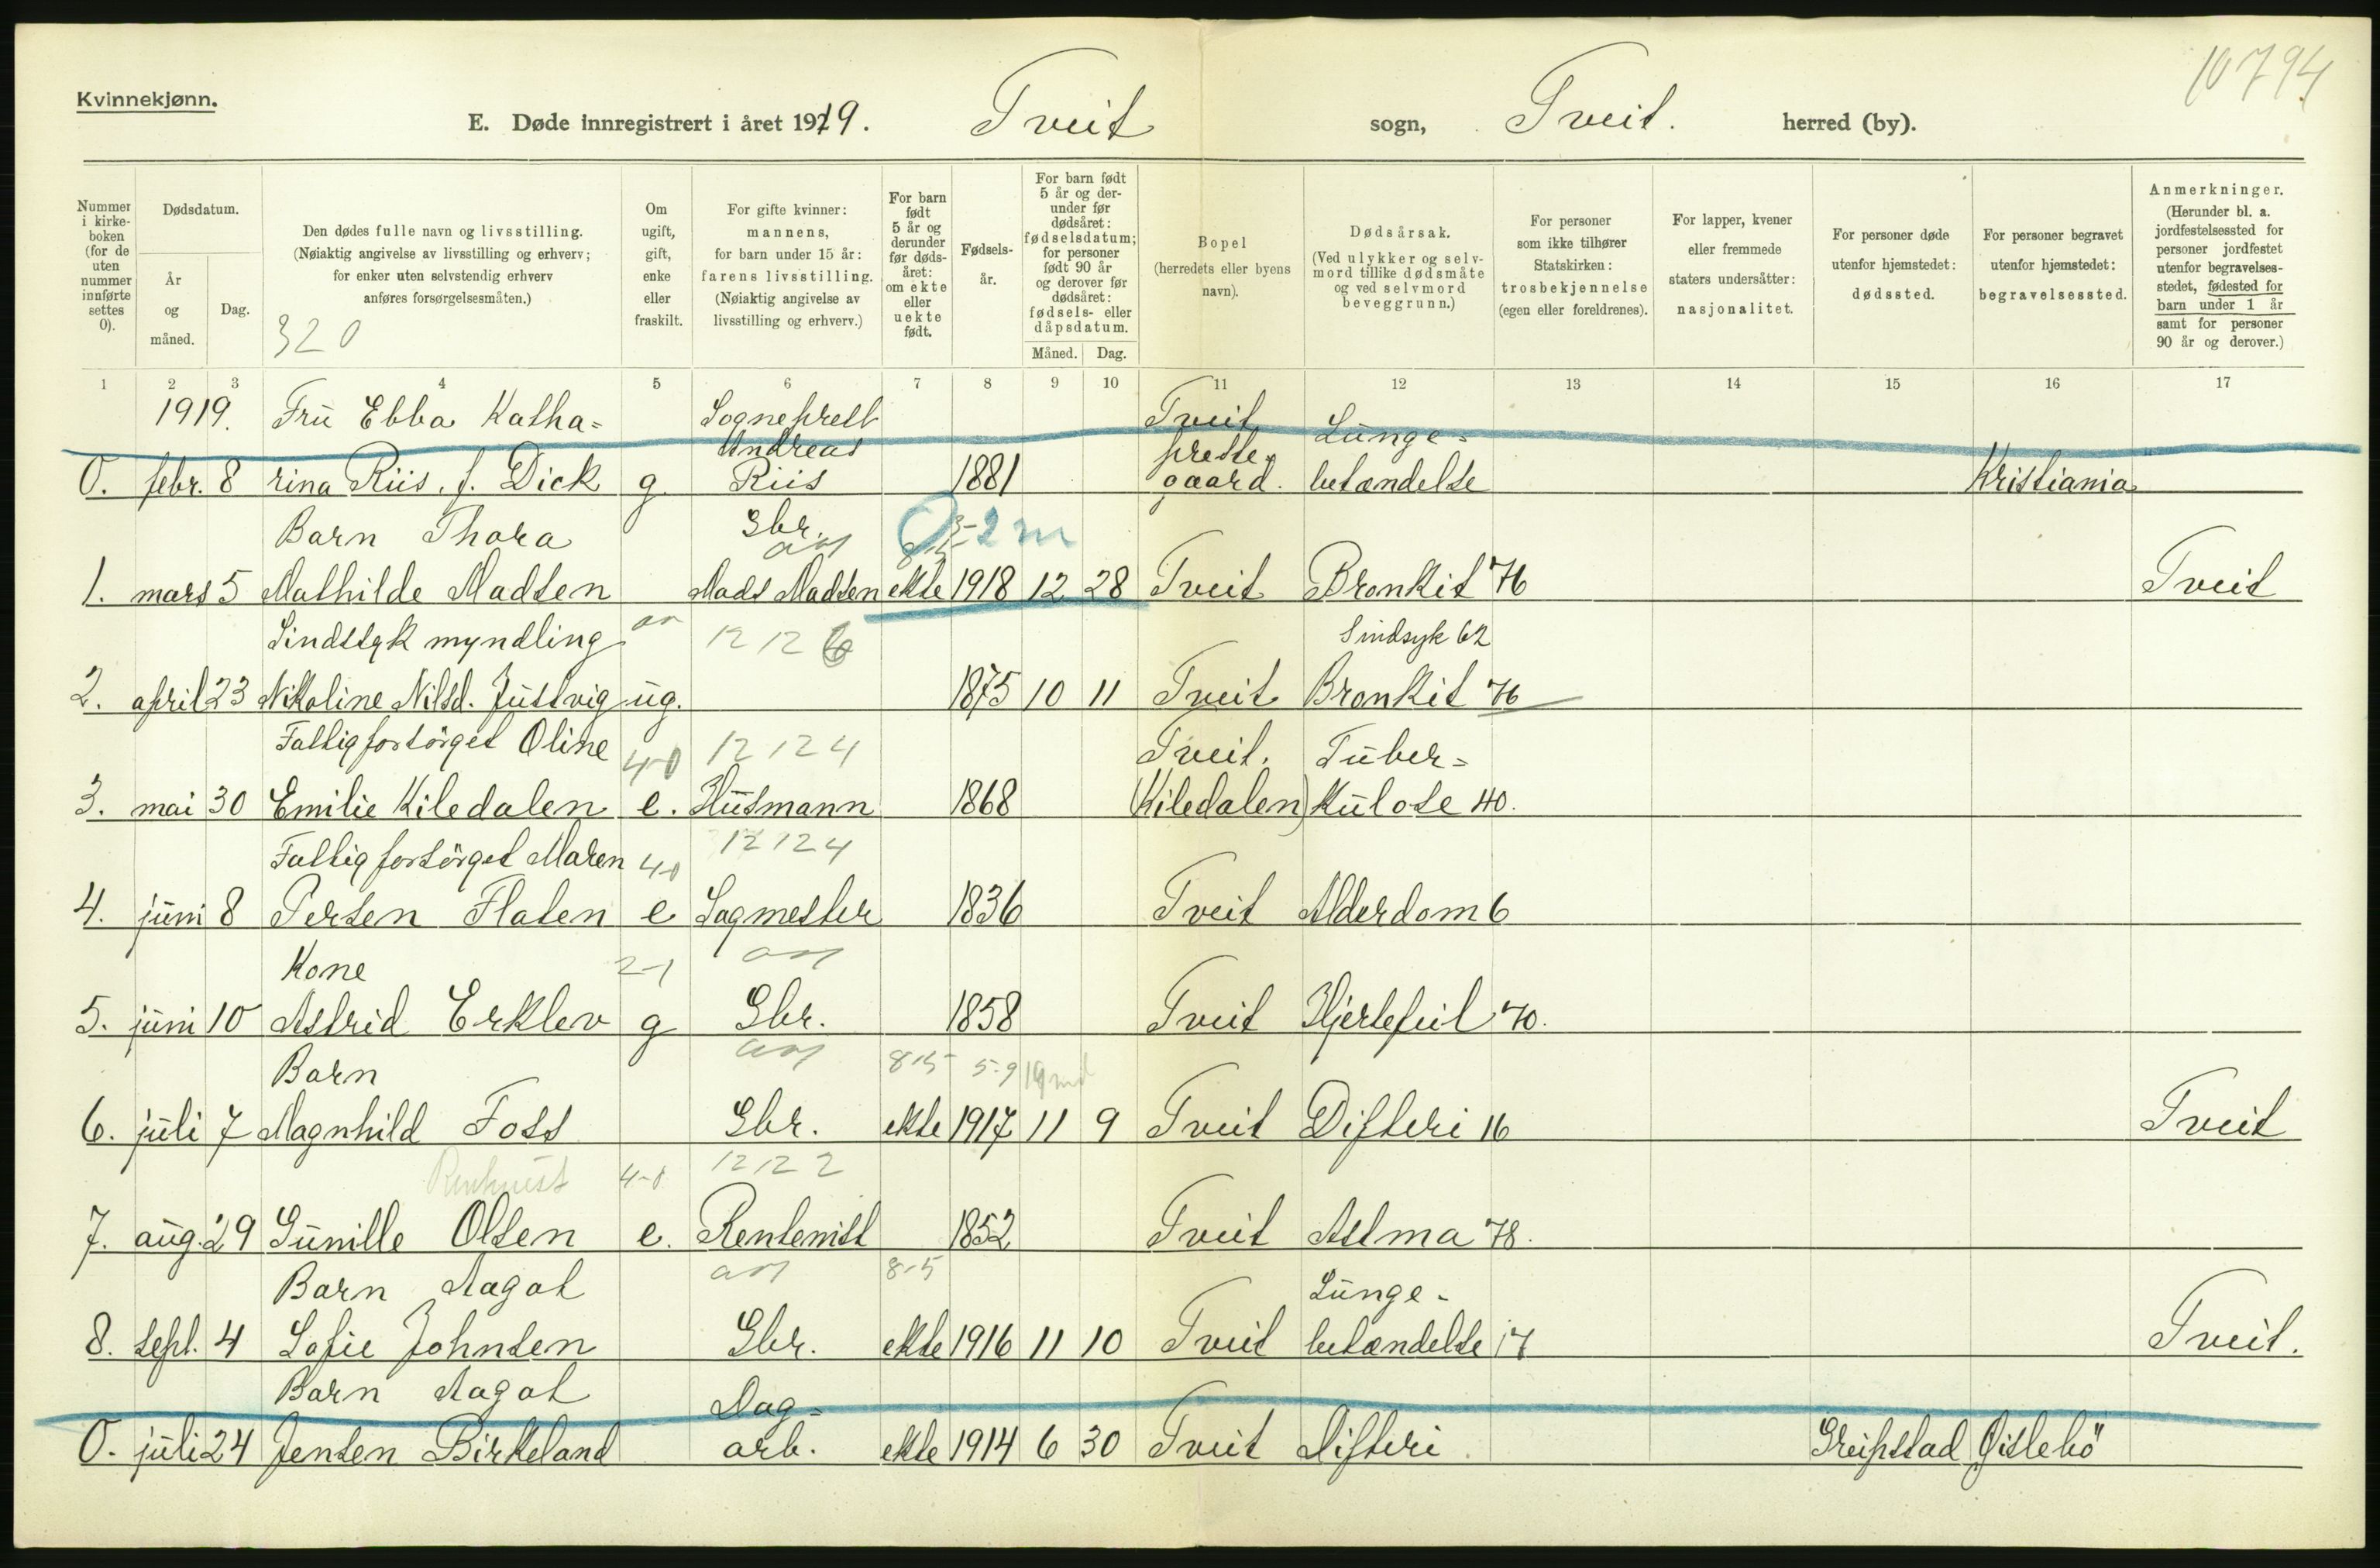 10794
Kvinnekjønn.
E. Døde innregistrert i året 1919. Tveit sogn, Tveit. herred (by).
Nummer i kirke-boken (for de uten nummer innførte settes 0).
Dødsdatum.
År og måned.
Dag.
Den dødes fulle navn og livsstilling. (Nøiaktig angivelse av livsstilling og erhverv; for enker uten selvstendig erhverv anføres forsørgelsesmåten.)
320
Om ugift, gift, enke eller fraskilt.
For gifte kvinner: mannens, for barn under 15 år: farens livsstilling. (Nøiaktig angivelse av livsstilling og erhverv.)
For barn født 5 år og derunder før døds-året: om ekte eller uekte født.
Fødsels-år.
For barn født 5 år og der-under før dødsåret: fødselsdatum; for personer født 90 år og derover før dødsåret: fødsels- eller dåpsdatum.
Måned. Dag.
Bopel (herredets eller byens navn).
Dødsårsak. (Ved ulykker og selv-mord tillike dødsmåte og ved selvmord beveggrunn.)
For personer som ikke tilhører Statskirken: trosbekjennelse (egen eller foreldrenes).
For lapper, kvener eller fremmede staters undersåtter: nasjonalitet.
For personer døde utenfor hjemstedet: dødssted.
For personer begravet utenfor hjemstedet: begravelsessted.
Anmerkninger. (Herunder bl. a. jordfestelsessted for personer jordfestet utenfor begravelses-stedet, fødested for barn under 1 år samt for personer 90 år og derover.)
1 2 3 4 5 6 7 8 9 10 11 12 13 14 15 16 17
1919. Fru Ebba Katha= Sogneprest Tveit Lunge=
Andreas preste=
0. febr. 8 rina Riis, f. Dick g. Riis 1881 gaard. betændelse Kristiania
Barn Thora Gbr. 2 m
1. mars 5 Mathilde Madsen Mads Madsen ekte 1918 12 28 Tveit Bronkit 76 Tveit
Sindssyk myndling 12 12 6 Sindsyk 62
2. april 23 Nikoline Nilsd. Justvig ug. 1875 10 11 Tveit Bronkit 76
Fattigforsörget Oline 4-0 12 12 4 Tveit. Tuber=
3. mai 30 Emilie Kiledalen e. Husmann 1868 (Kiledalen) kulose 40.
Fattigforsörget Maren 4-0 12 12 4
4. juni 8 Persen Flaten e Sagmester 1836 Tveit Alderdom 6
Kone 2-1
5. juni 10 Astrid Erklev g Gbr. 1858 Tveit Hjertefeil 70.
Barn 8-5 5-9 19 md
6. juli 7 Magnhild Foss Gbr. ekte 1917 11 9 Tveit Difteri 16 Tveit
4-0 12 12 2
7. aug. 29 Gunille Olsen e. Rentenist 1852 Tveit Astma 78.
Barn Aagot 8-5 Lunge-
8. sept. 4 Sofie Johnsen Gbr. ekte 1916 11 10 Tveit betændelse 17 Tveit.
Barn Aagot Dag=
0. juli 24 Jensen Birkeland arb. ekte 1914 6 30 Tveit Difteri Greipstad Gislebö